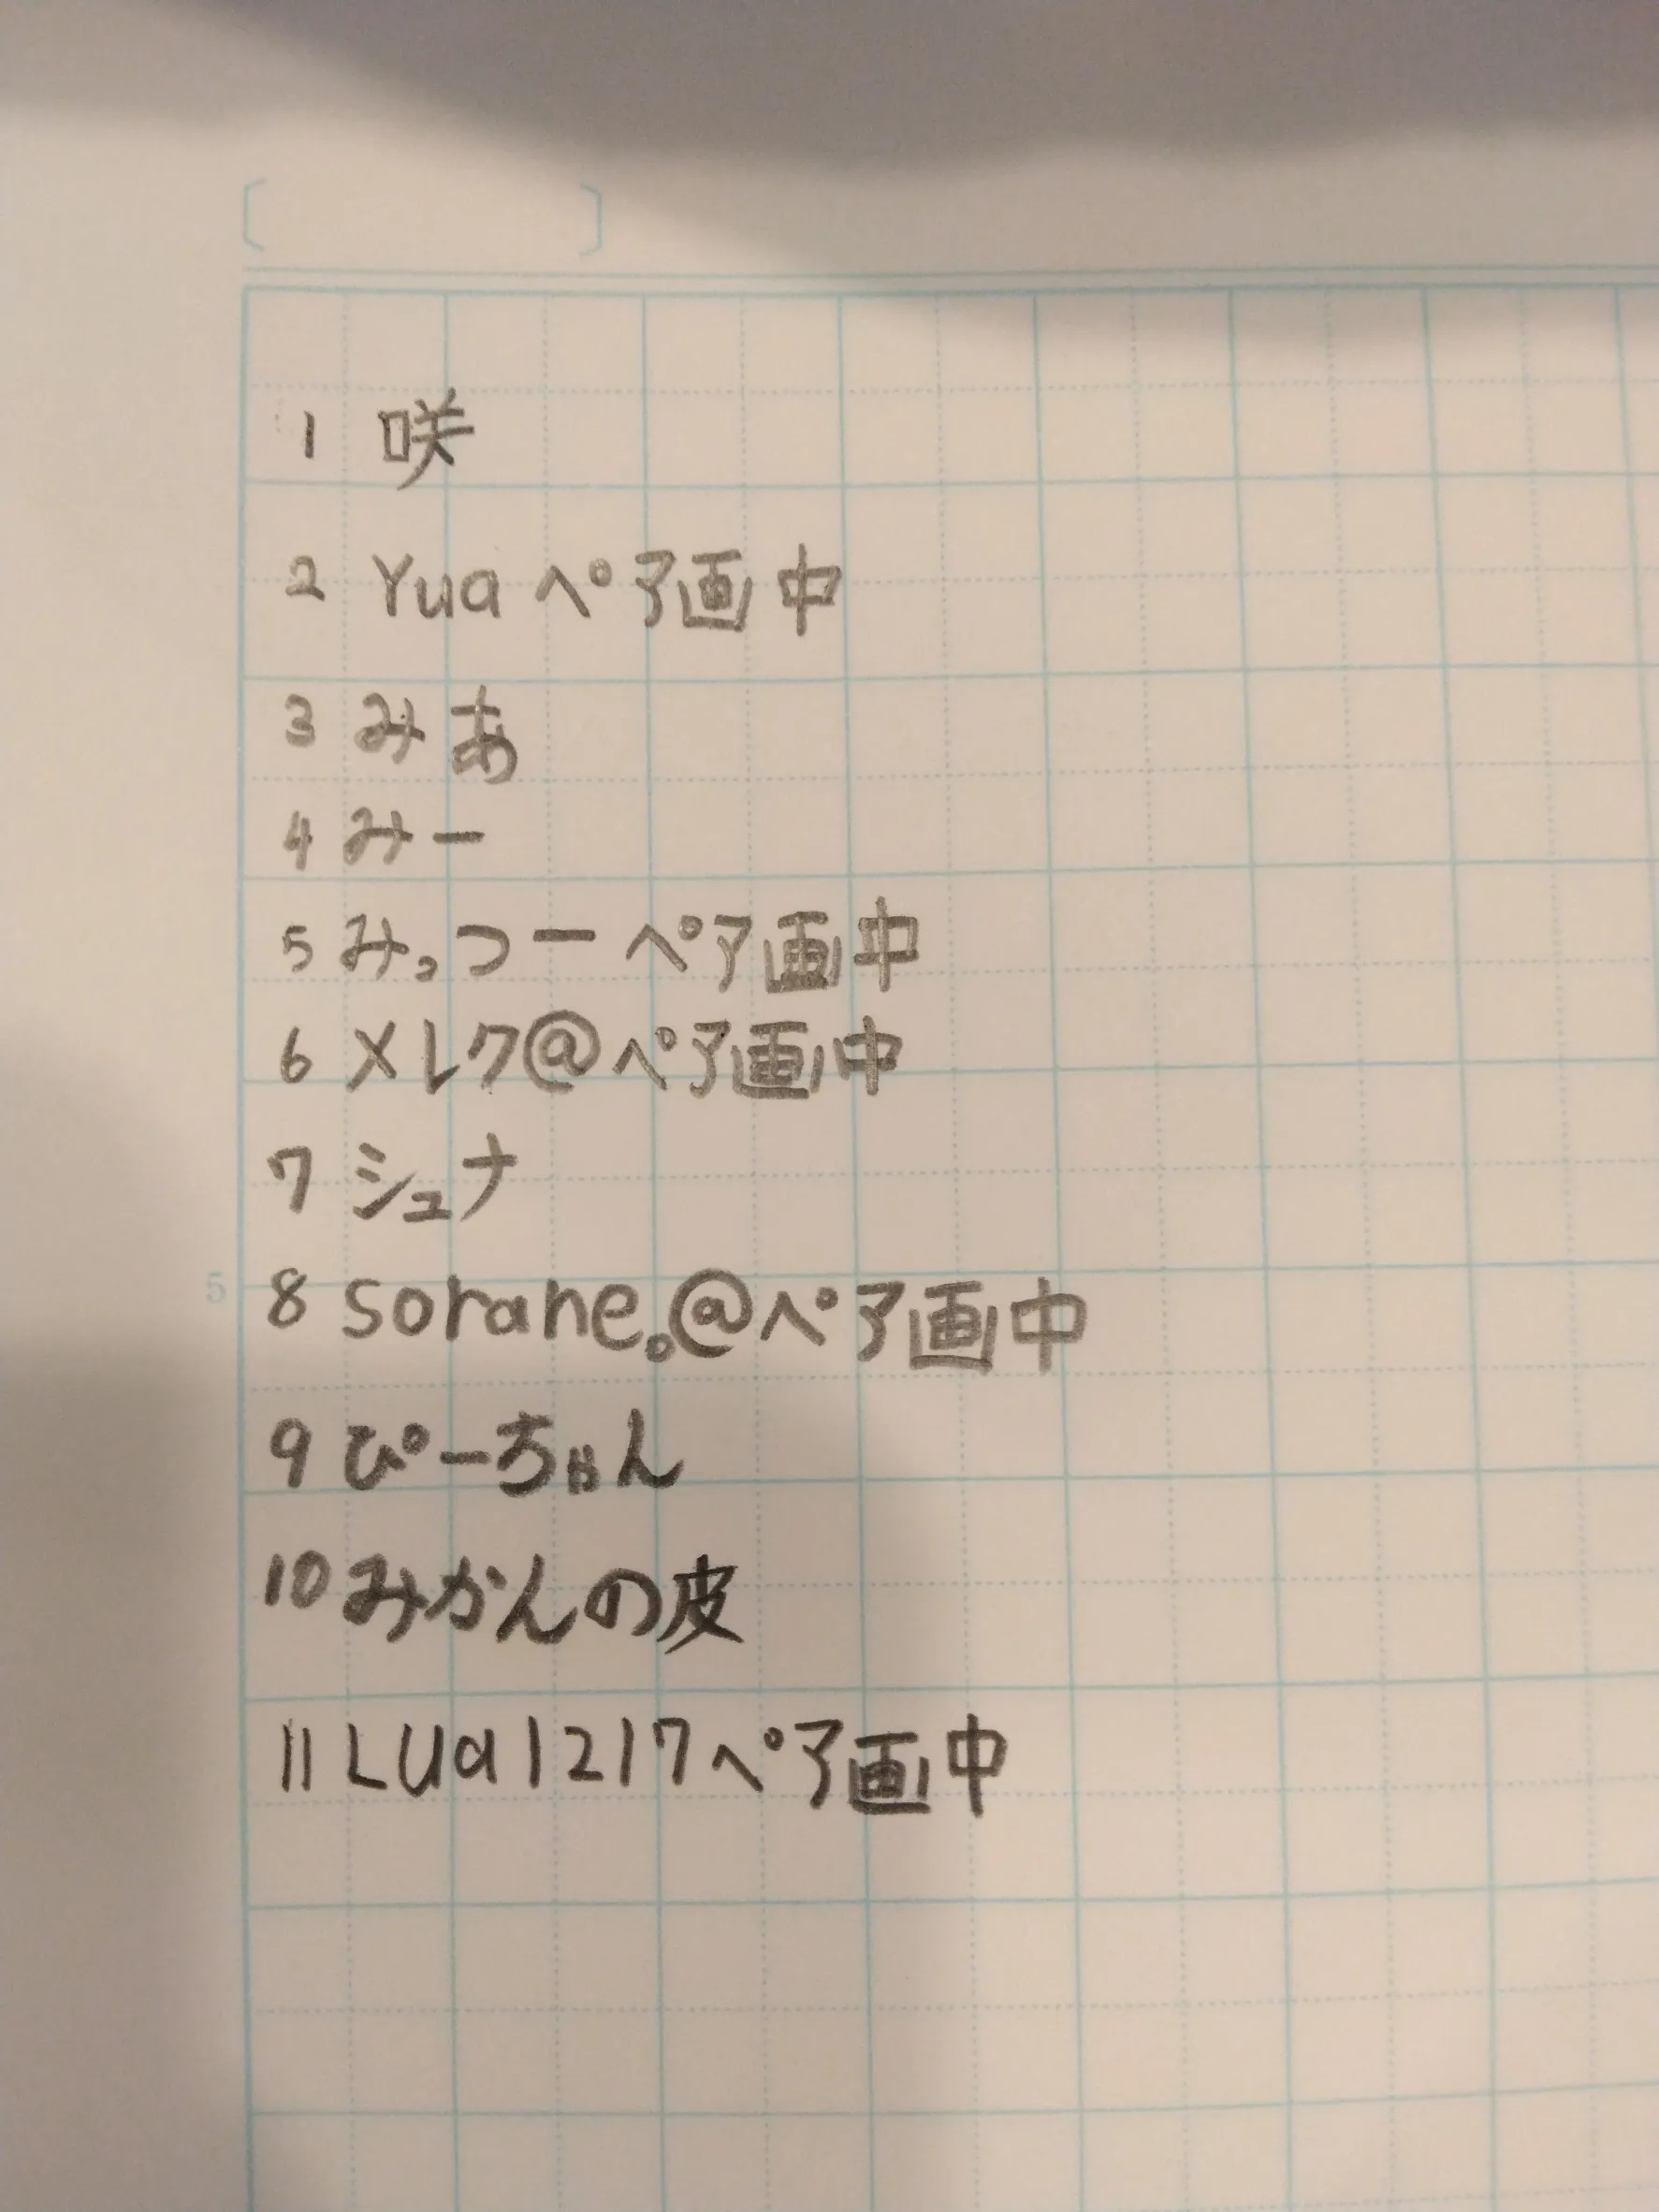 1 咲
2 Yuaペア画中
3 みあ
4 みー
5 みっつーペア画中
6 メレク@ペア画中
7 シュナ
5
8 sorane。@ペア画中
9 ぴーちゃん
10 みかんの皮
11 Lua1217ペア画中